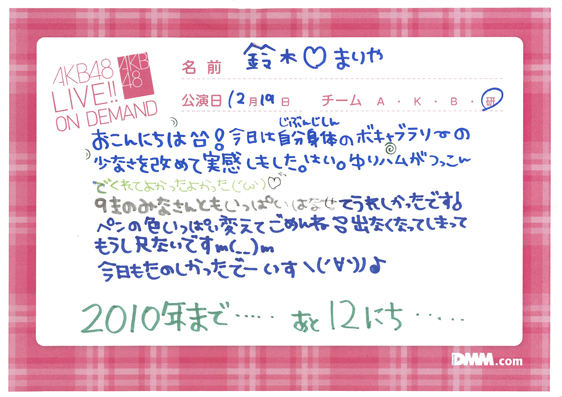 AKB48
LIVE!!
ON DEMAND
AKB
48
名前 鈴木♡まりや
公演日 12月19日 チーム A・K・B・研
じぶんじしん
おこんにちは 今日は自分身体のボキャブラリーの
少なさを改めて実感しました。はい。ゆりハムがつっこん
でくれてよかったよかった(´ω`)♡
9生のみなさんともいっぱいはなせてうれしかったです!
ペンの色いっぱい変えてごめんね 出なくなってしまって
もうし訳ないですm(__)m
今日もたのしかったでーいす\(´∀`)♪
2010年まで‥‥‥ あと12にち‥‥‥
DMM.com